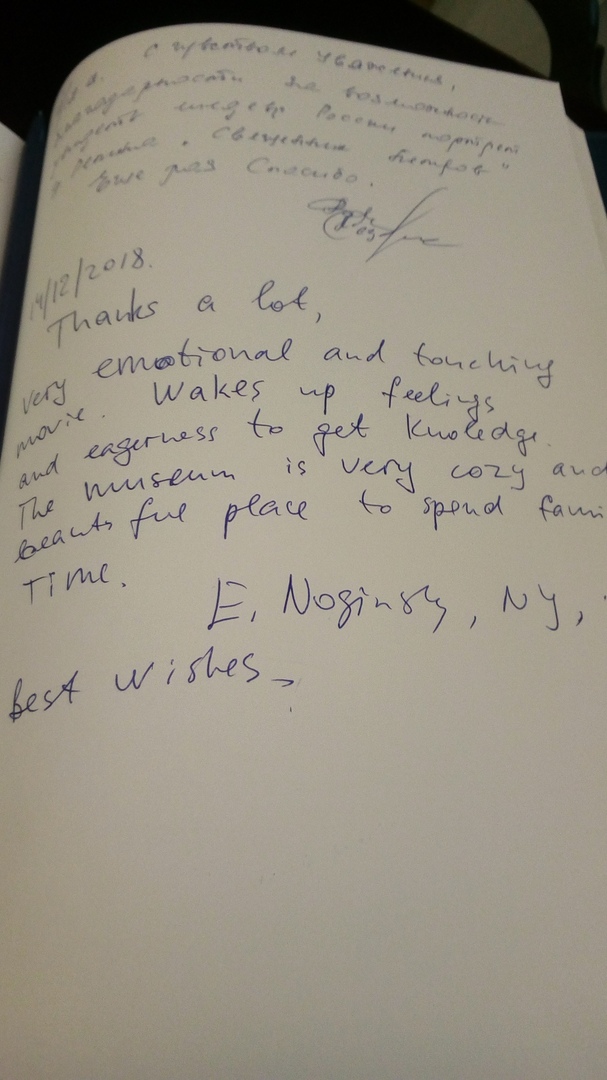 с чувством уважения,
благодарности за возможность
увидеть шедевр России портрет
Репина. Священник Петров"
Еще раз Спасибо.
14/12/2018.
Thanks a lot,
very emotional and touching
movie. Wakes up feelings
and eagerness to get knoledge.
The museum is very cozy and
beautiful place to spend fami
Time.
E. Noginsky, NY,
best wishes